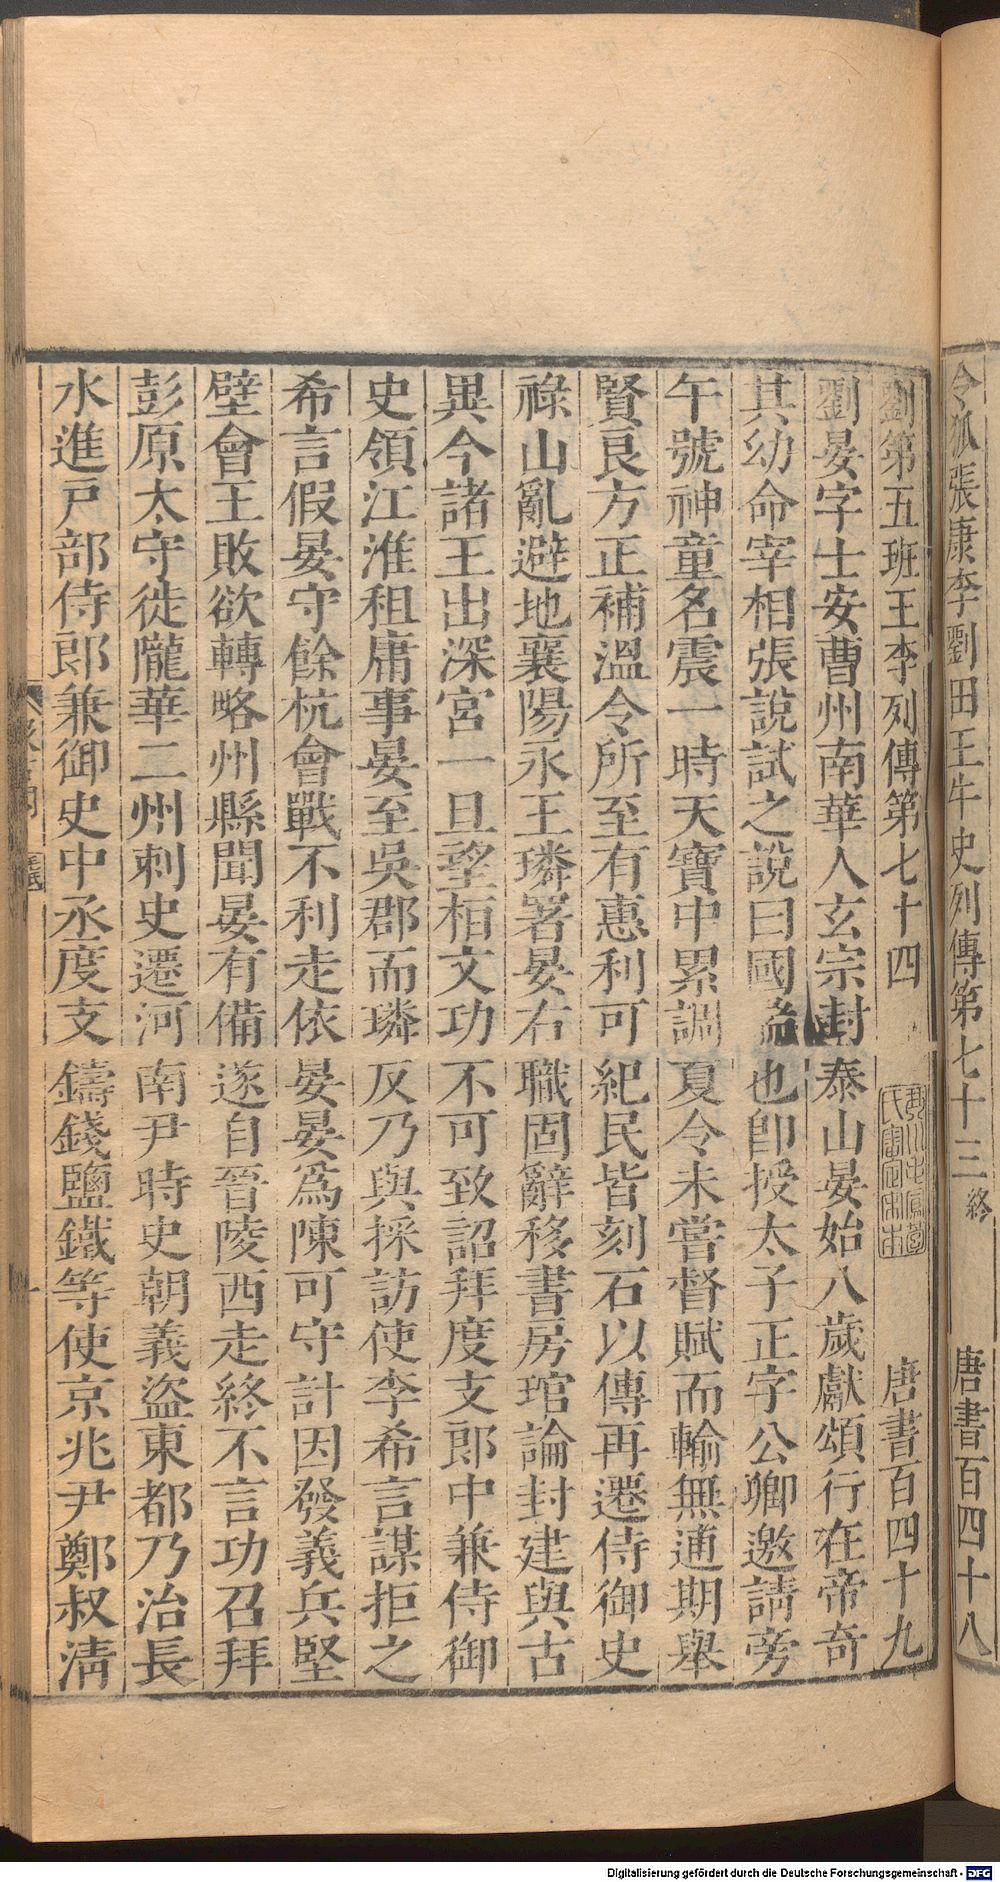 令狐張康李劉田王牛史列傳第七十三終 唐書百四十八
劉第五班王李列傳第七十四 唐書百四十九
劉晏字士安曹州南華人玄宗封泰山晏始八歲獻頌行在帝奇
其幼命宰相張說試之說曰國瑞也卽授太子正字公卿邀請旁
午號神童名震一時天寶中累調夏令未嘗督賦而輸無逋期舉
賢良方正補溫令所至有惠利可紀民皆刻石以傳再遷侍御史
祿山亂避地襄陽永王璘署晏右職固辭移書房琯論封建與古
異今諸王出深宮一旦望桓文功不可致詔拜度支郎中兼侍御
史領江淮租庸事晏至吳郡而璘反乃與採訪使李希言謀拒之
希言假晏守餘杭會戰不利走依晏晏爲陳可守計因發義兵堅
壁會王敗欲轉略州縣聞晏有備遂自晉陵西走終不言功召拜
彭原太守徙隴華二州刺史遷河南尹時史朝義盜東都乃治長
水進戸部侍郎兼御史中丞度支鑄錢鹽鐵等使京兆尹鄭叔淸
Digitalisierung gefördert durch die Deutsche Forschungsgemeinschaft - DFG